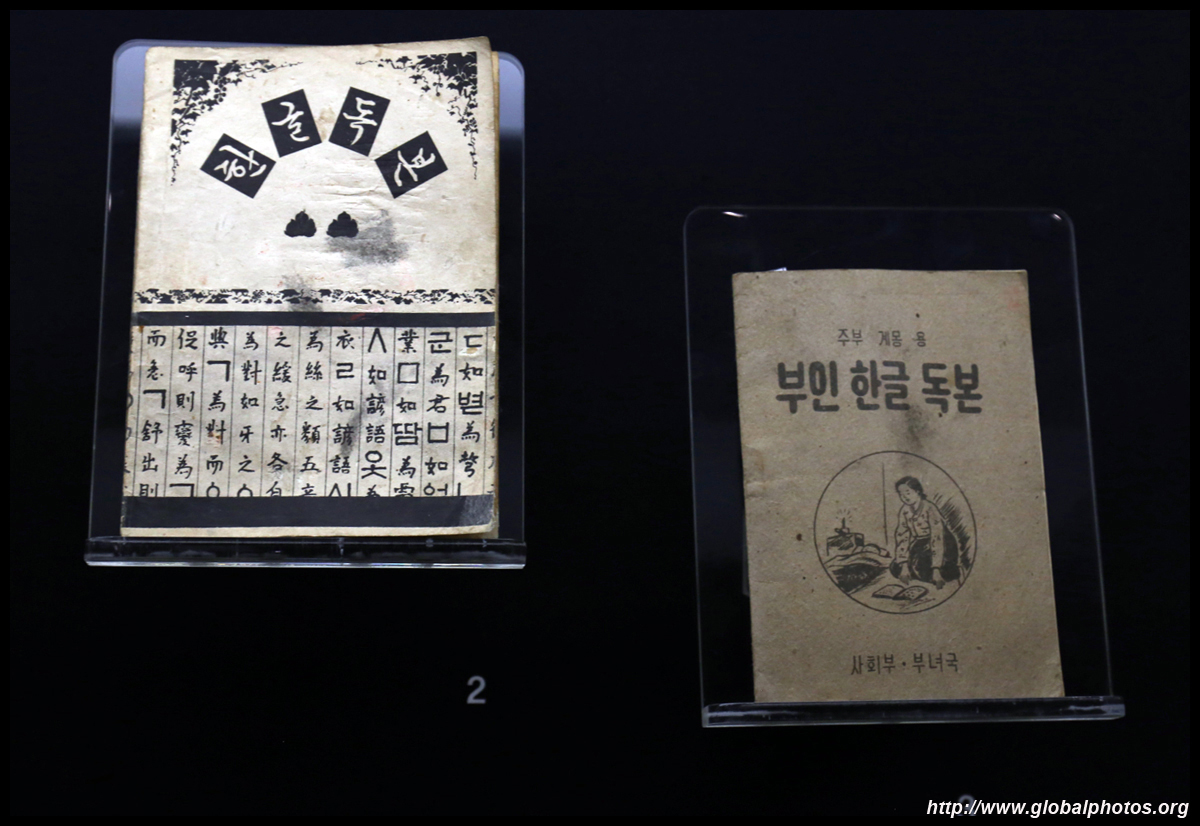 한글독본
ㄷ如볃為彆
군為君ㅁ如
業ㅁ如땀為覃
ㅅ如諺語옷為
衣ㄹ如諺語
為絲之類五音
之緩急亦各自
為對如牙之ㆁ
與ㄱ為對而ㆁ
促呼則變為ㄱ
而急ㄱ舒出則
2
주부 계몽 용
부인 한글 독본
사회부·부녀국
http://www.globalphotos.org